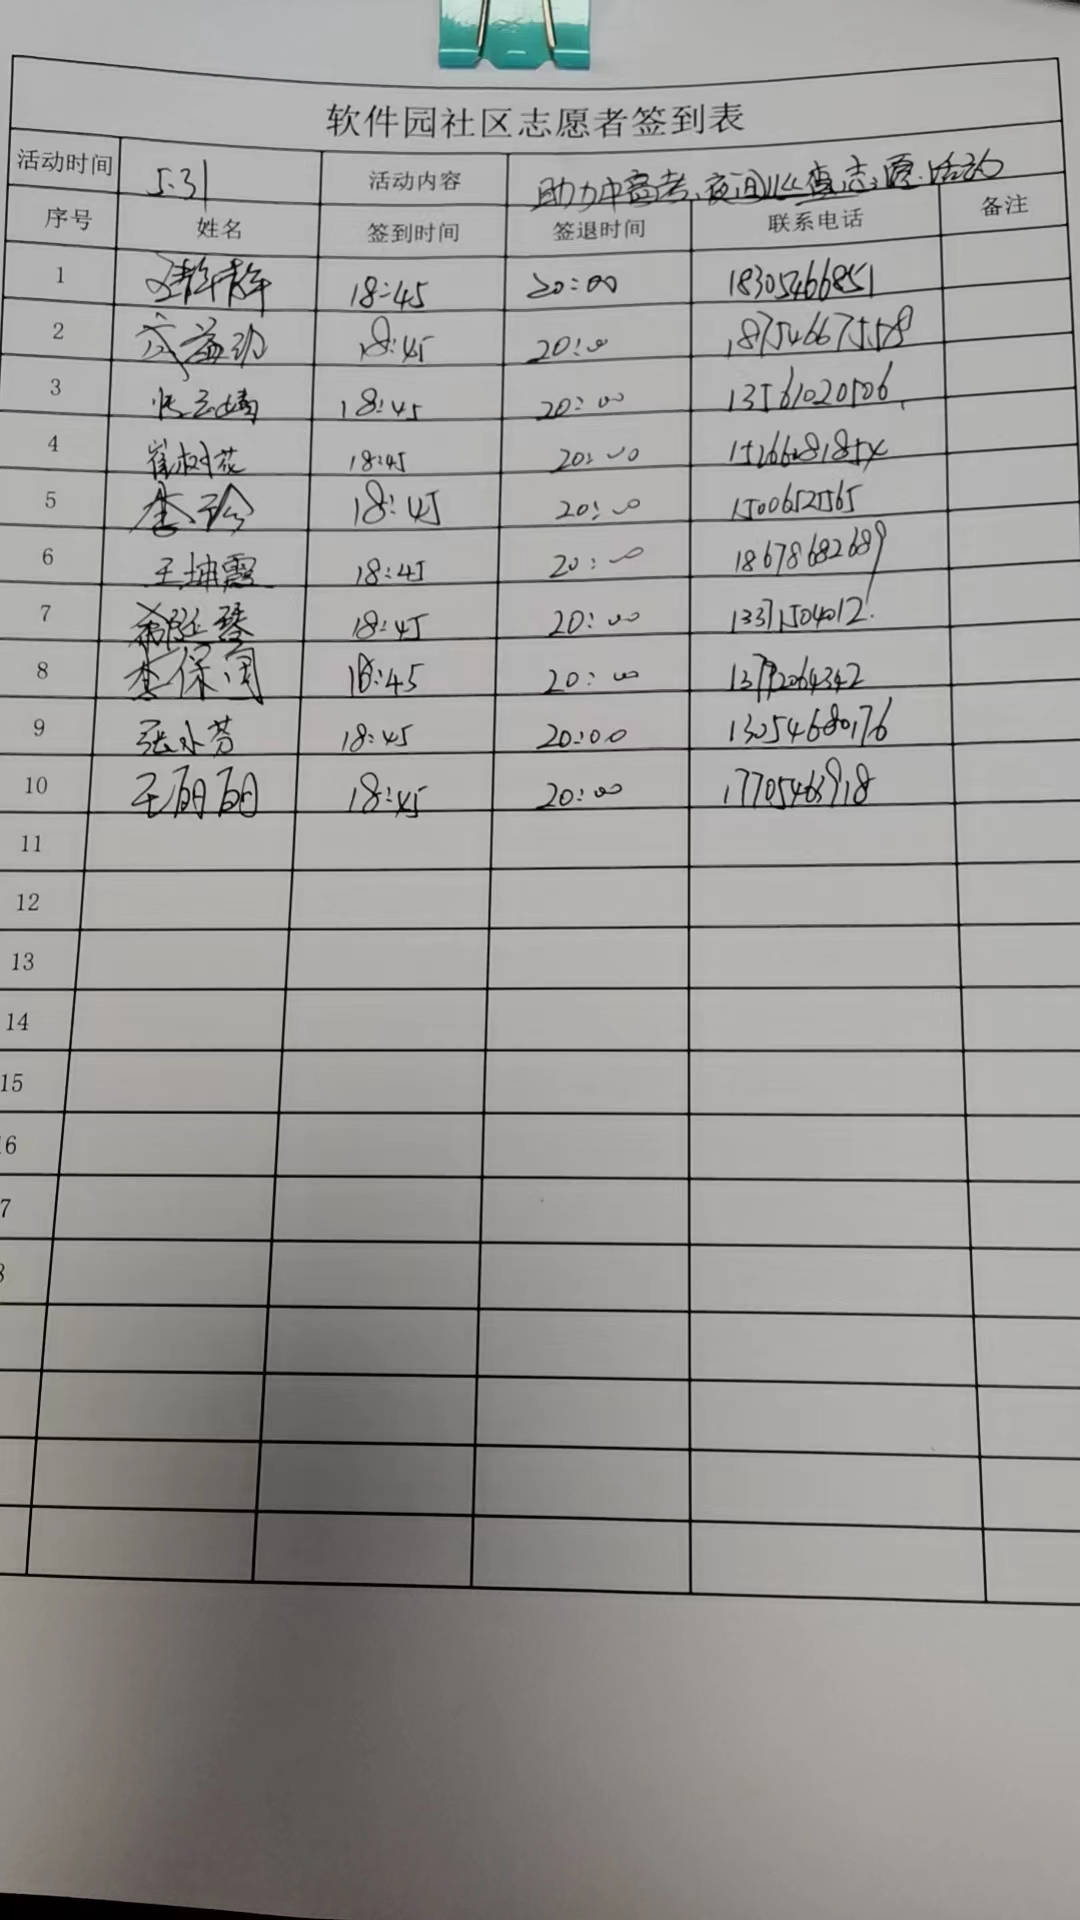 软件园社区志愿者签到表
活动时间 5.31 活动内容 助力中高考、夜间巡查志愿活动
序号 姓名 签到时间 签退时间 联系电话 备注
1 静静 18:45 20:00 18305466851
2 18:45 20:00 18754667558
3 18:45 20:00 13561020506
4 崔树花 18:45 20:00 15266281854
5 李玲 18:45 20:00 15006521565
6 王坤霞 18:45 20:00 18678682689
7 18:45 20:00 13371504012
8 李保国 18:45 20:00
9 张水芳 18:45 20:00 13054680176
10 王丽丽 18:45 20:00 17705463918
11
12
13
14
15
16
7
8